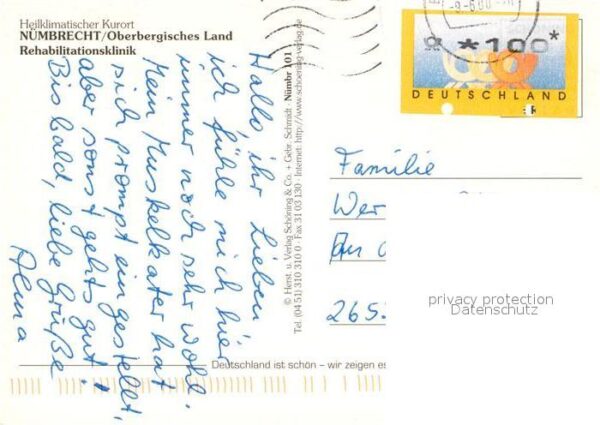 Heilklimatischer Kurort
NÜMBRECHT/Oberbergisches Land
Rehabilitationsklinik
Hallo, ihr Lieben
ich fühle mich hier
immer noch sehr wohl.
Mein Muskelkater hat
sich prompt eingestellt,
aber sonst gehts gut!
Bis bald, liebe Grüße
Alma
© Herst. u. Verlag Schöning & Co. + Gebr. Schmidt · Nümbr 101
Tel. (04 51) 310 310 0 · Fax 31 03 130 · Internet: http://www.schoening-verlag.de
-9-6.00
*100*
DEUTSCHLAND
Familie
Wer
An
265
privacy protection
Datenschutz
Deutschland ist schön – wir zeigen es